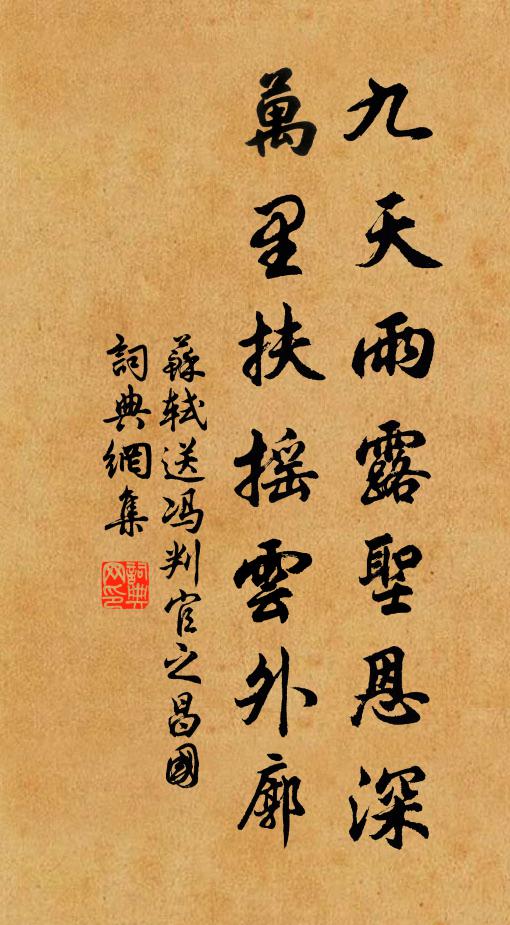 九天雨露聖恩深
萬里扶摇雲外廓
蘇軾送冯判官之昌國
詞典網集
詞典網印